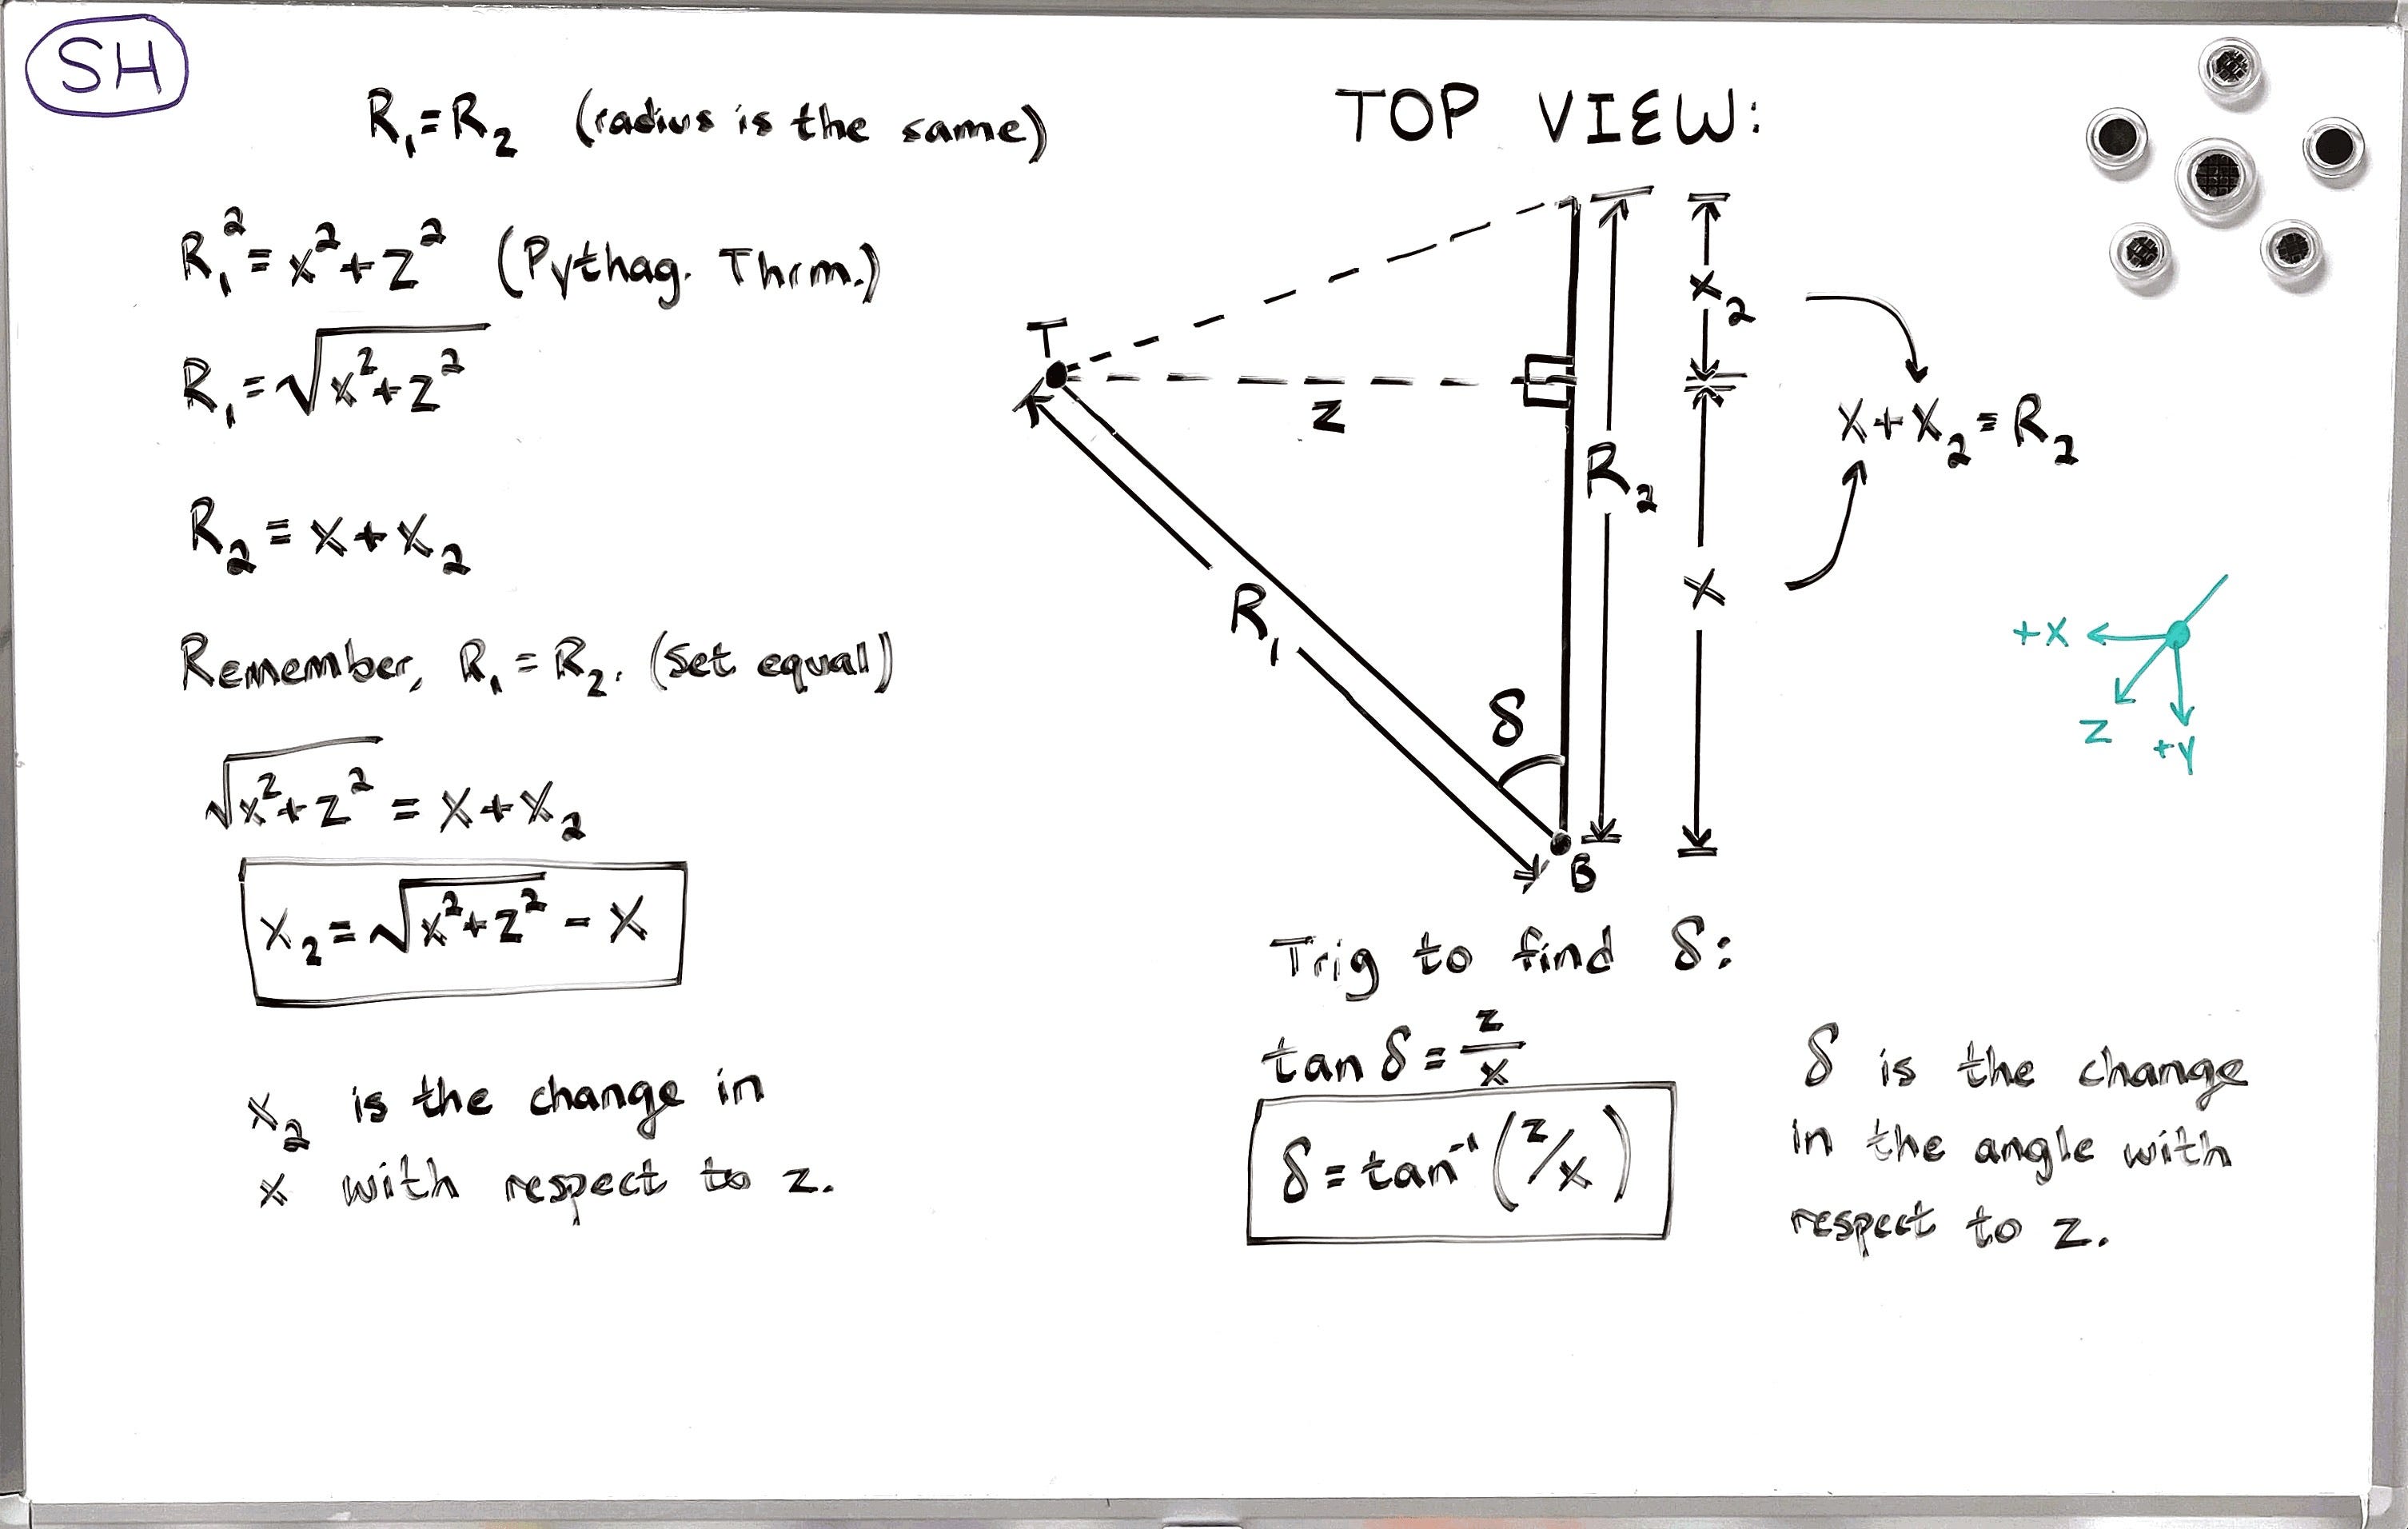 SH
R₁=R₂ (radius is the same)
R₁²=x²+z² (Pythag. Thrm.)
R₁=√x²+z²
R₂=x+x₂
Remember, R₁=R₂. (set equal)
√x²+z² = x+x₂
x₂=√x²+z² - x
x₂ is the change in
x with respect to z.
TOP VIEW:
T
z
R₁
R₂
x₂
x
x+x₂=R₂
δ
B
+x
z
+y
Trig to find δ:
tan δ = z/x
δ=tan⁻¹(z/x)
δ is the change
in the angle with
respect to z.